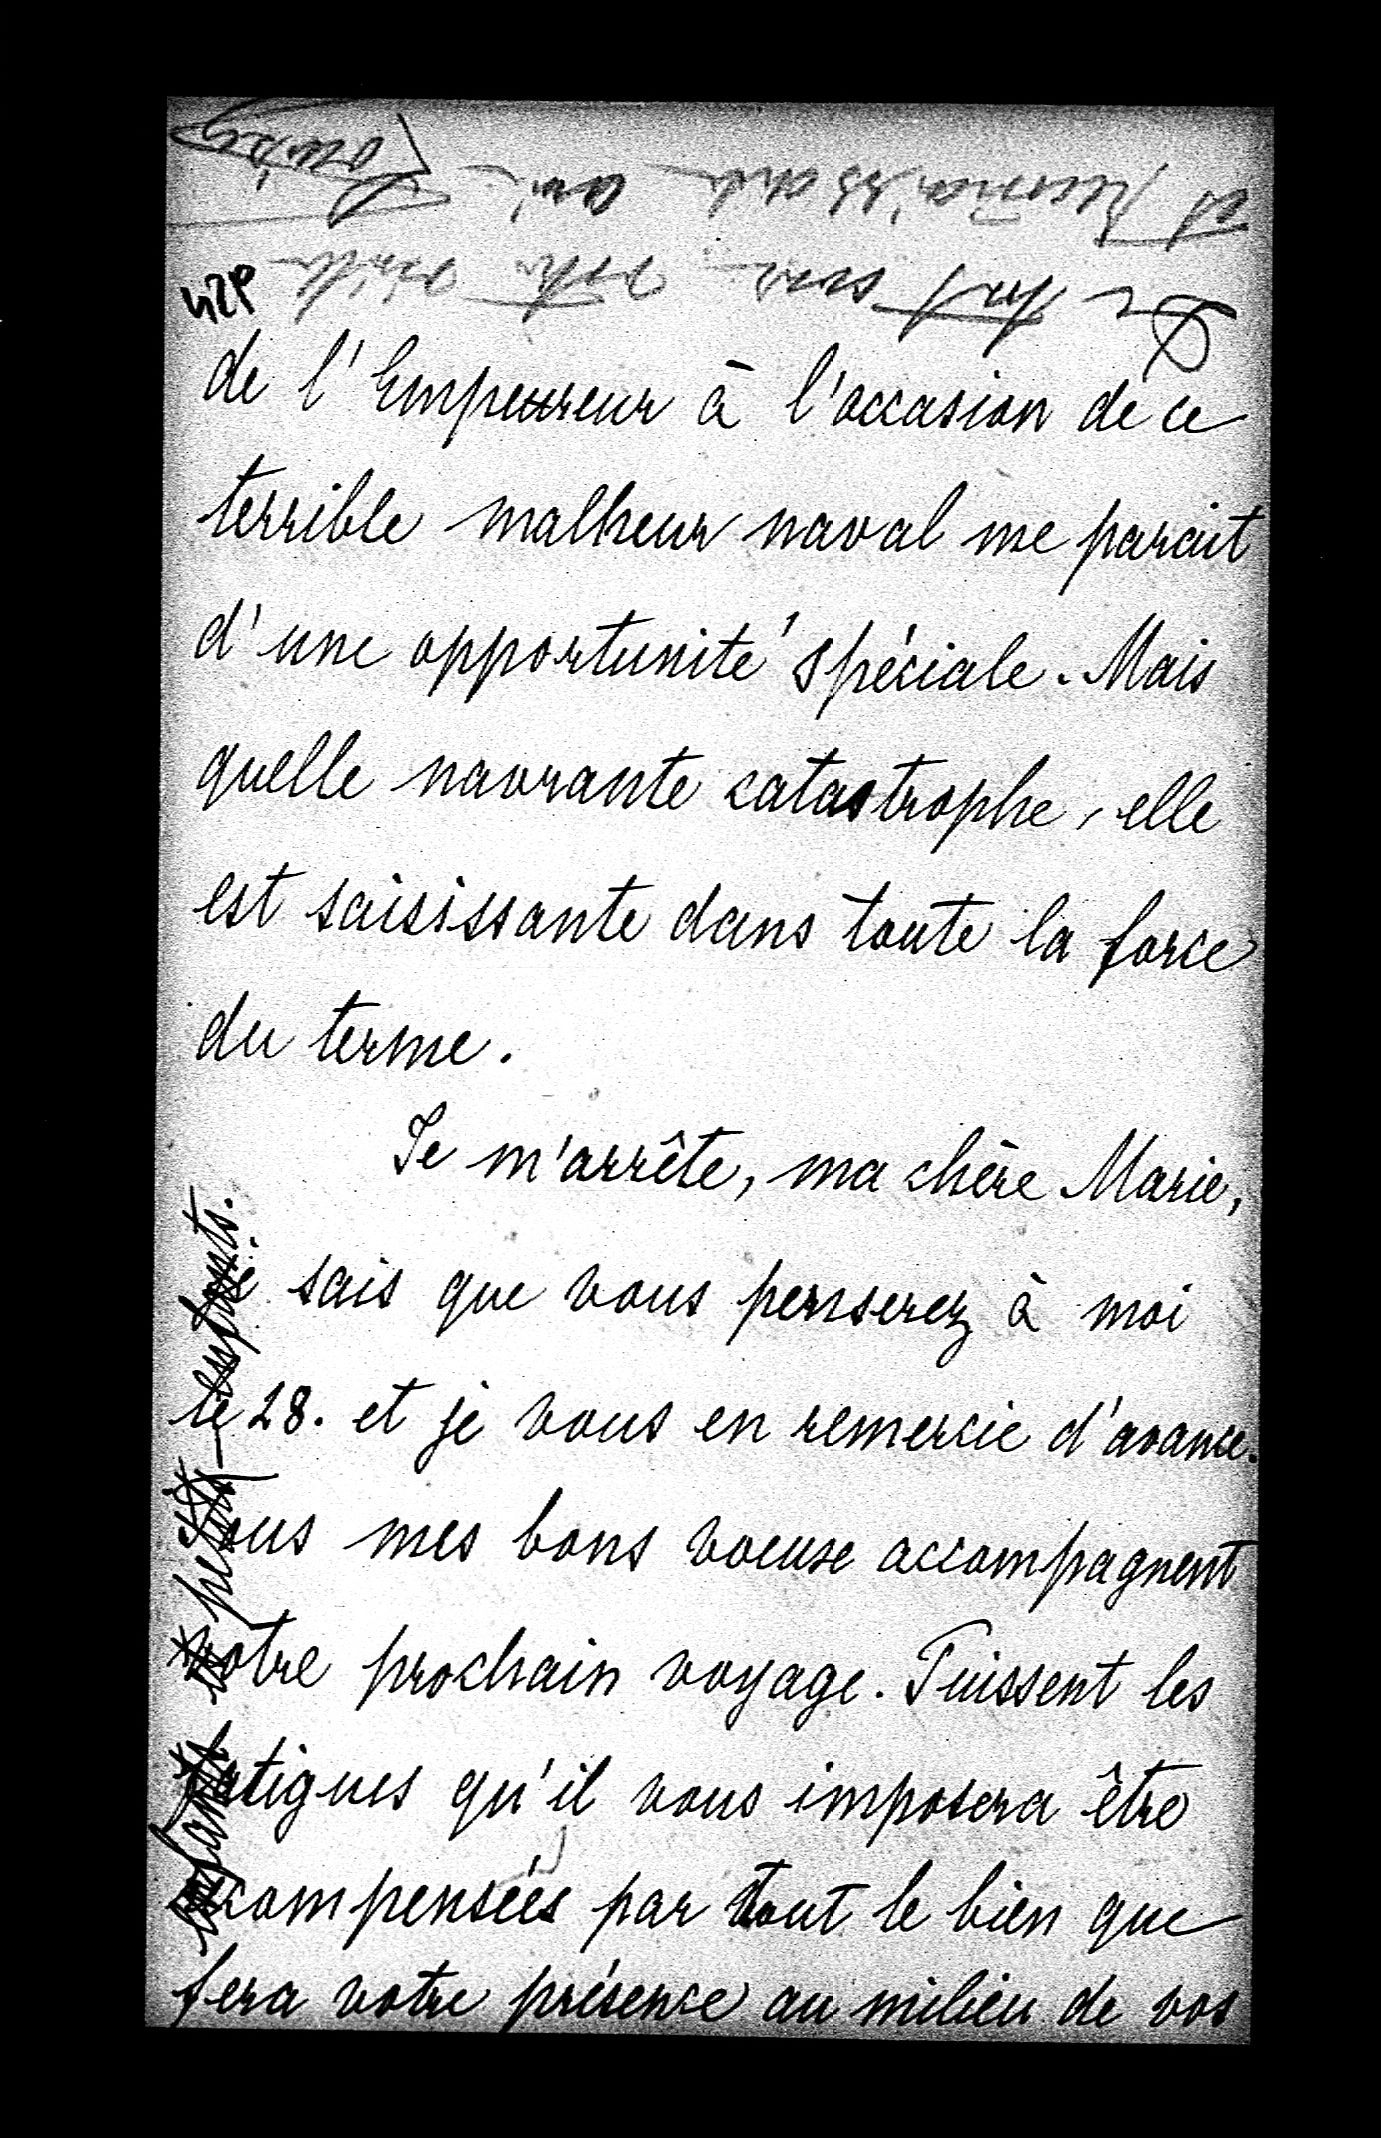 De tout cœur votre vieille
et reconnaissante amie
Louise
42P
de l'Empereur à l'occasion de ce
terrible malheur naval me parait
d'une opportunité spéciale. Mais
quelle navrante catastrophe, elle
est saisissante dans toute la force
du terme.
Je m'arrête, ma chère Marie,
je sais que vous penserez à moi
le 28. et je vous en remercie d'avance.
Tous mes bons voeuse accompagnent
votre prochain voyage. Puissent les
fatigues qu'il vous imposera être
recompensées par tout le bien que
fera votre présence au milieu de vos
enfants petits enfants.